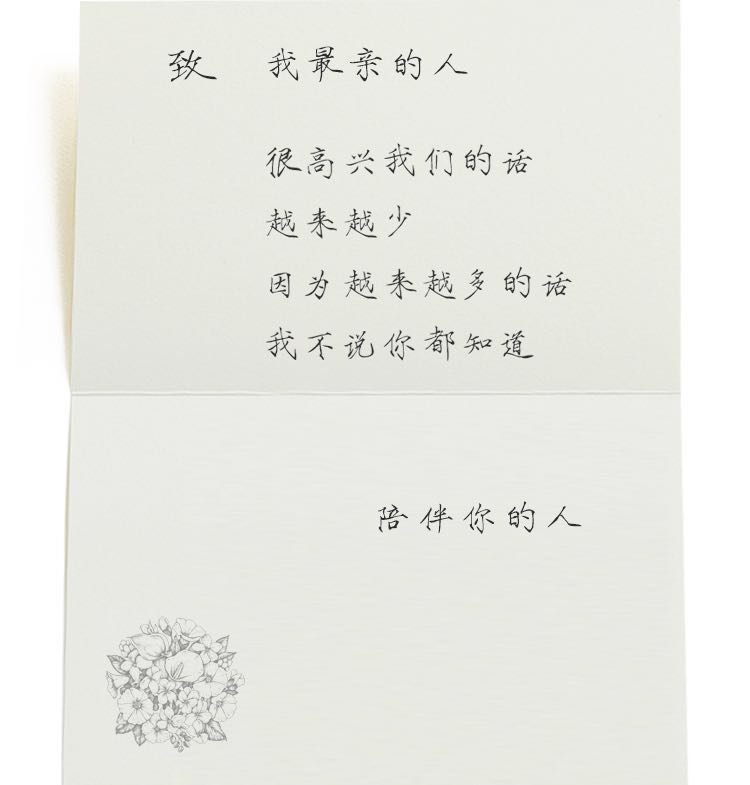 致 我最亲的人
很高兴我们的话
越来越少
因为越来越多的话
我不说你都知道
陪伴你的人